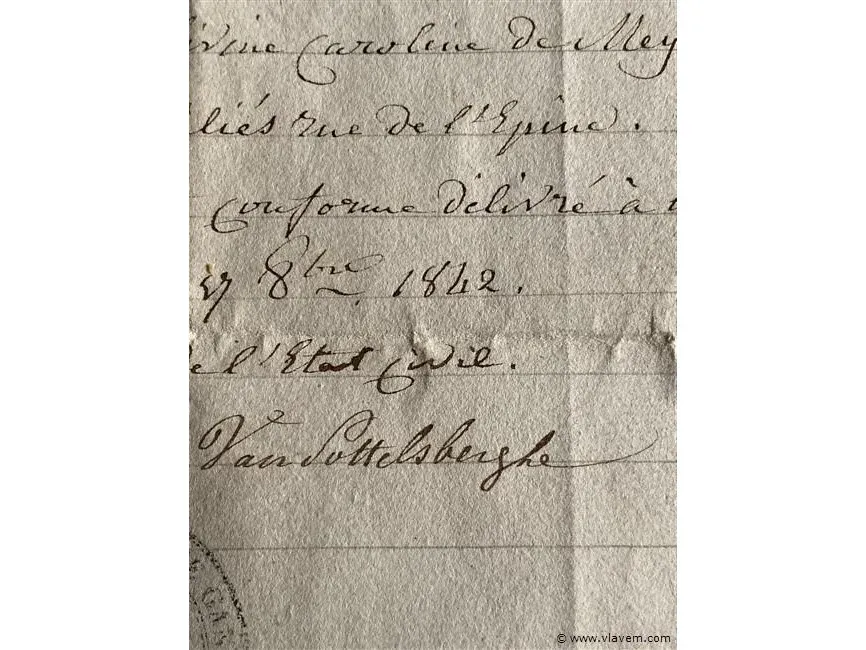 ivine Caroline de Mey
liés rue de l'Epine.
conforme délivré à
27 8bre 1842.
de l'Etat Civil.
Van Pottelsberghe
GAN
© www.vlavem.com